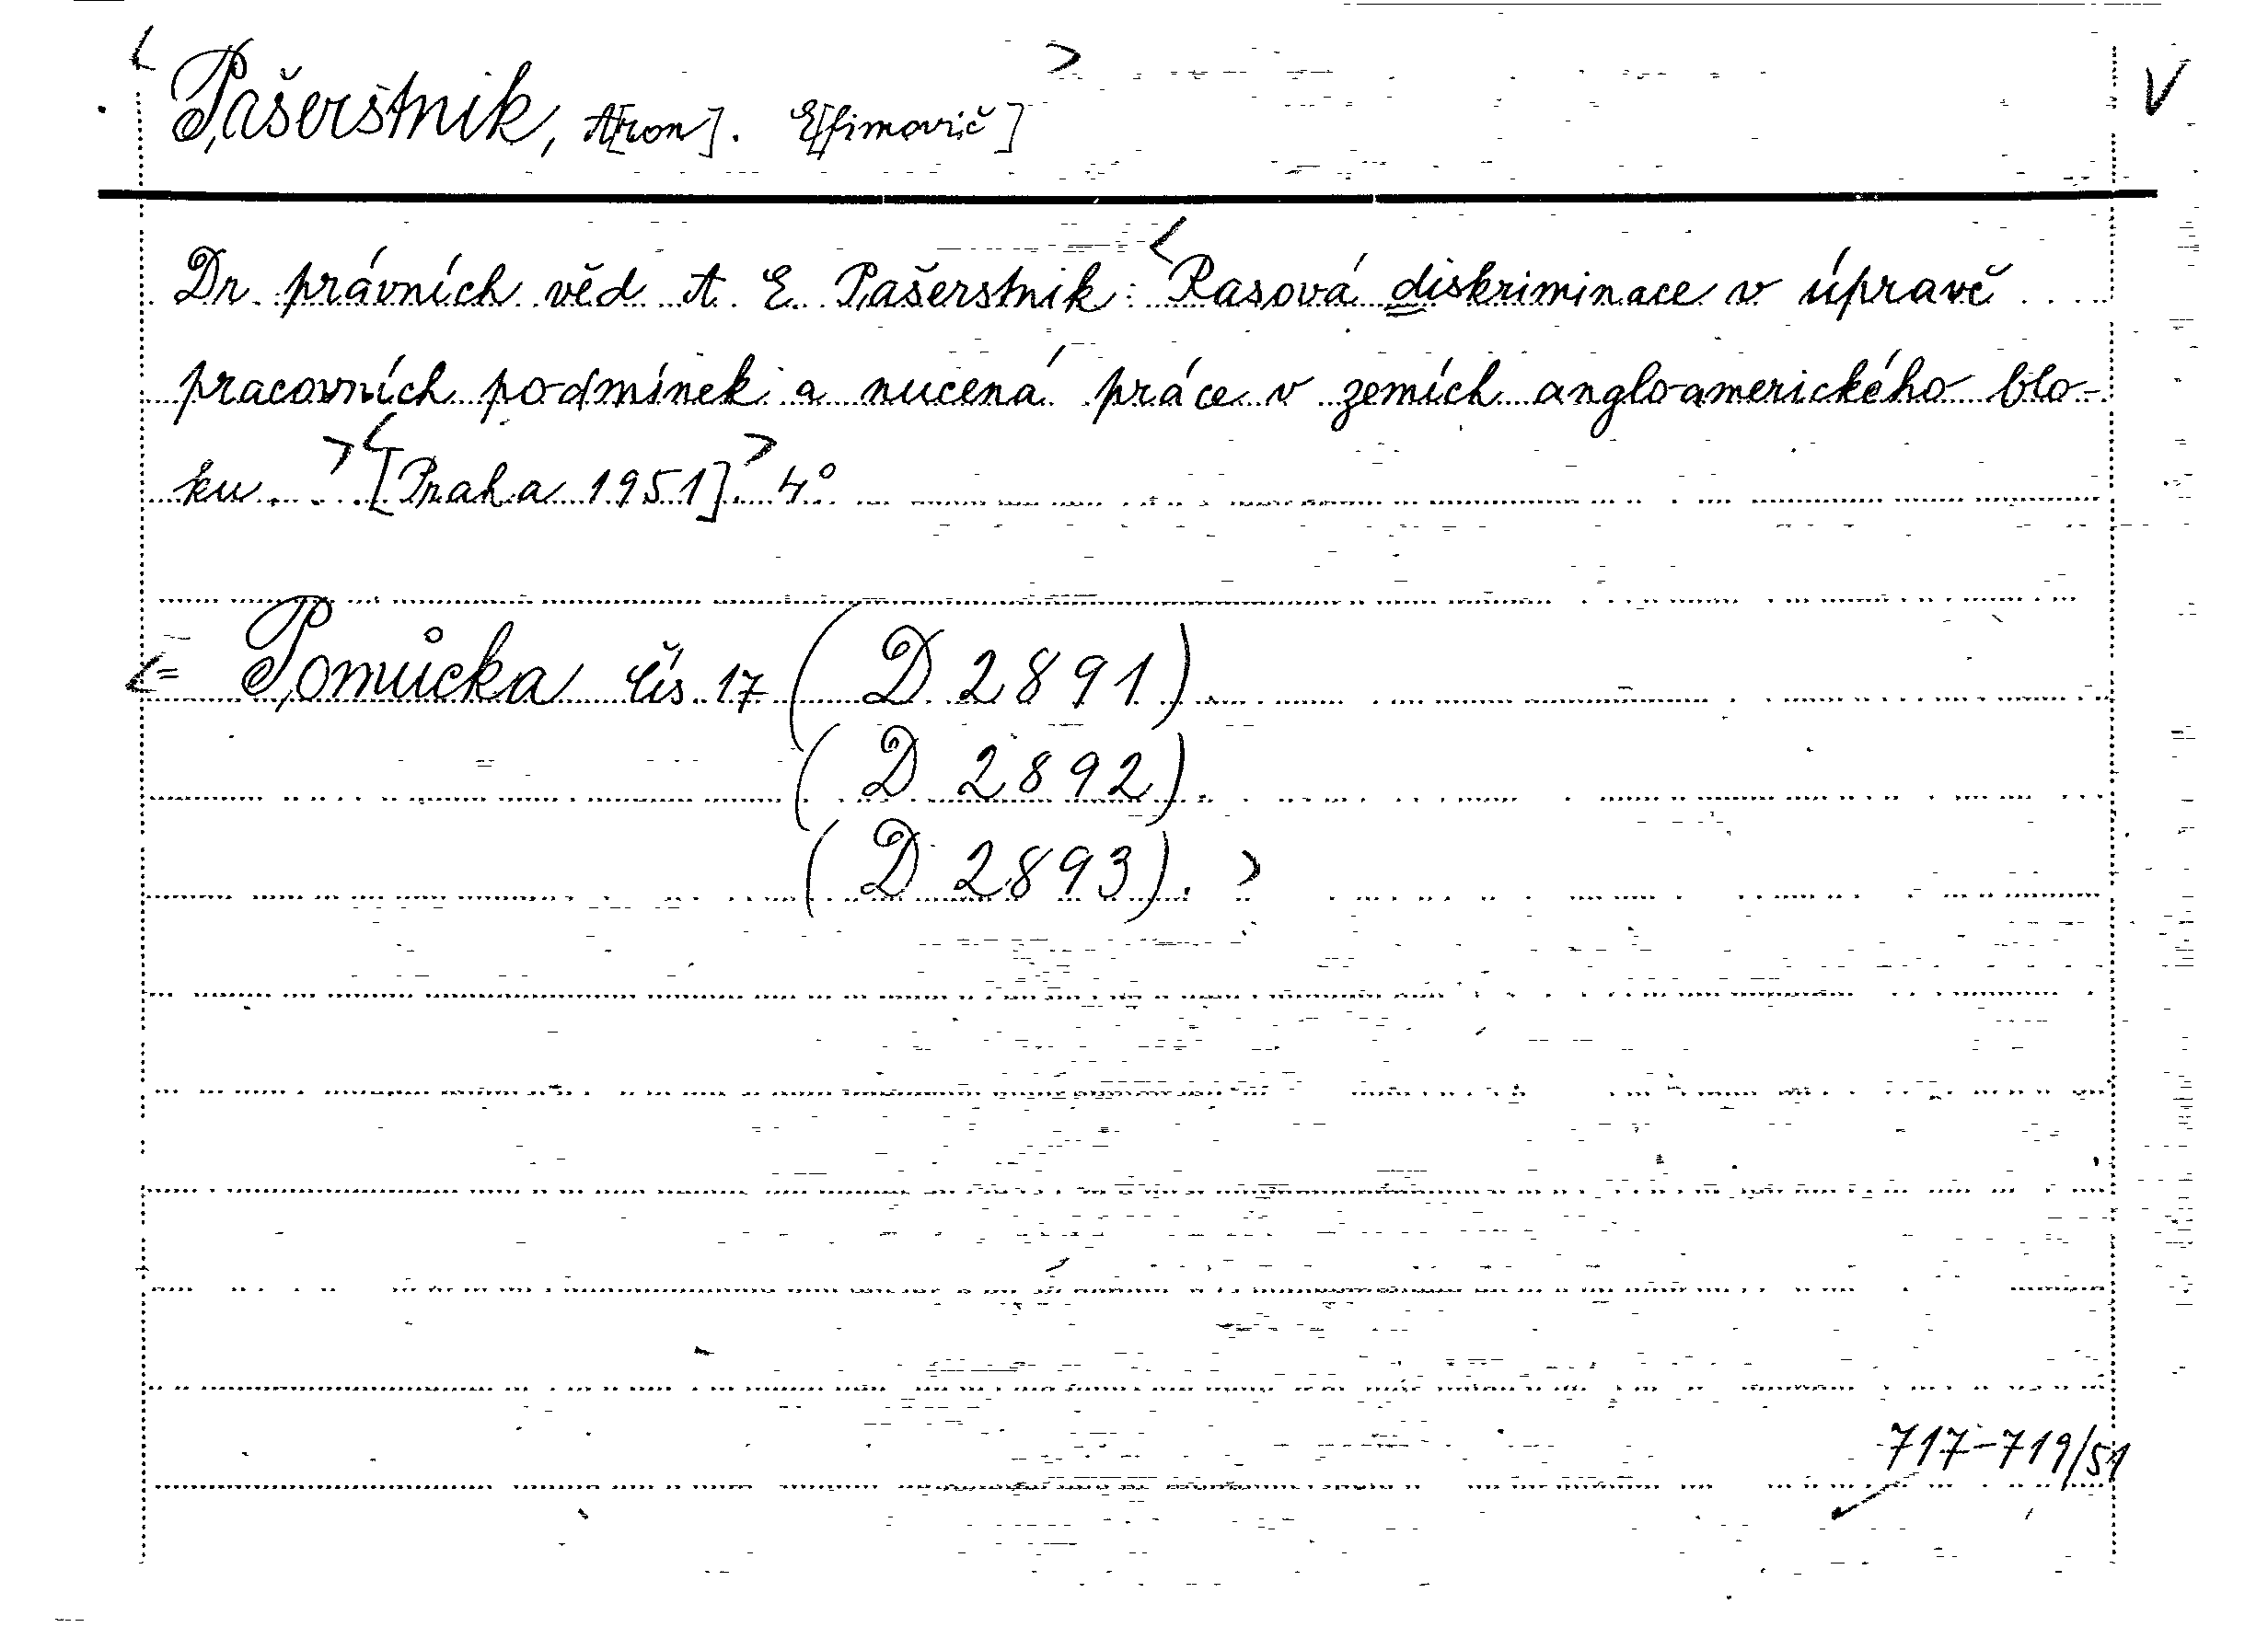 < Pašerstnik, A[ron]. E[fimovič] > V
Dr. právních věd A. E. Pašerstnik: <Rasová diskriminace v úpravě
pracovních podmínek a nucená práce v zemích angloamerického blo-
ku. . . > <[Praha 1951].> 4°
<= Pomůcka čís. 17 (D 2891).
(D 2892).
(D 2893). >
717-719/51